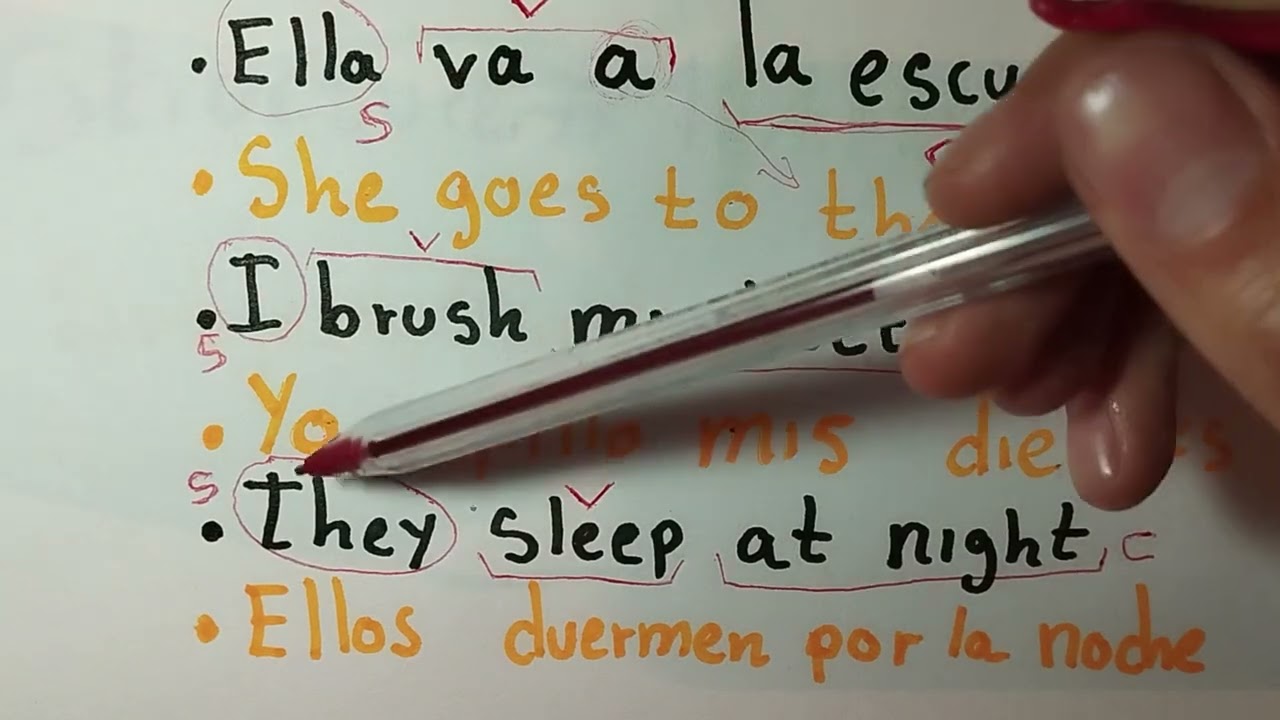 • Ella va a la escu
S
• She goes to th
• I brush
S
• Yo mis
S
• They sleep at night C
• Ellos duermen por la noche